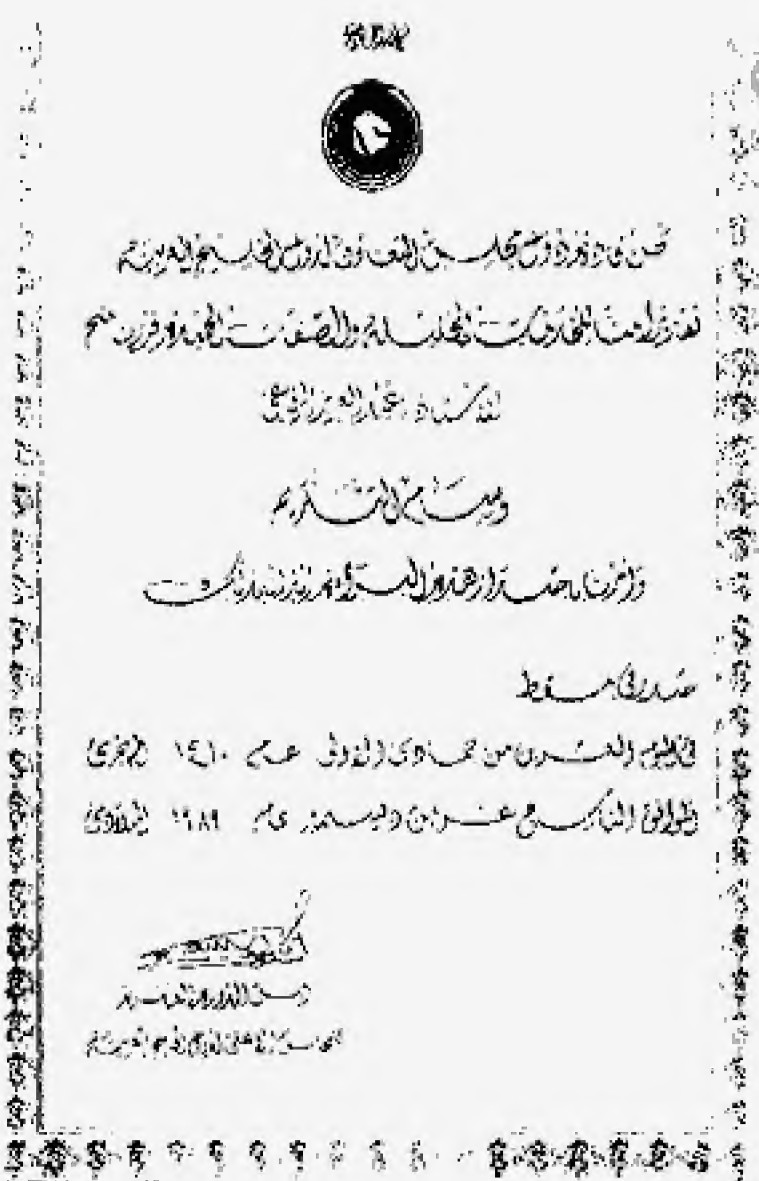 نحن قادة دول مجلس التعاون لدول الخليج العربية
تقديراً منا للخدمات الجليلة والصفات الحميدة قررنا منح
الأستاذ عبدالعزيز
وسام التكريم
وأمرنا باصدار هذه البراءة
صدر في مسقط
في اليوم العشرين من جمادى الأولى عام ١٤١٠ الهجري
الموافق التاسع عشر من ديسمبر عام ١٩٨٩ الميلادي
رئيس الدورة العاشرة
للمجلس الأعلى لدول الخليج العربية